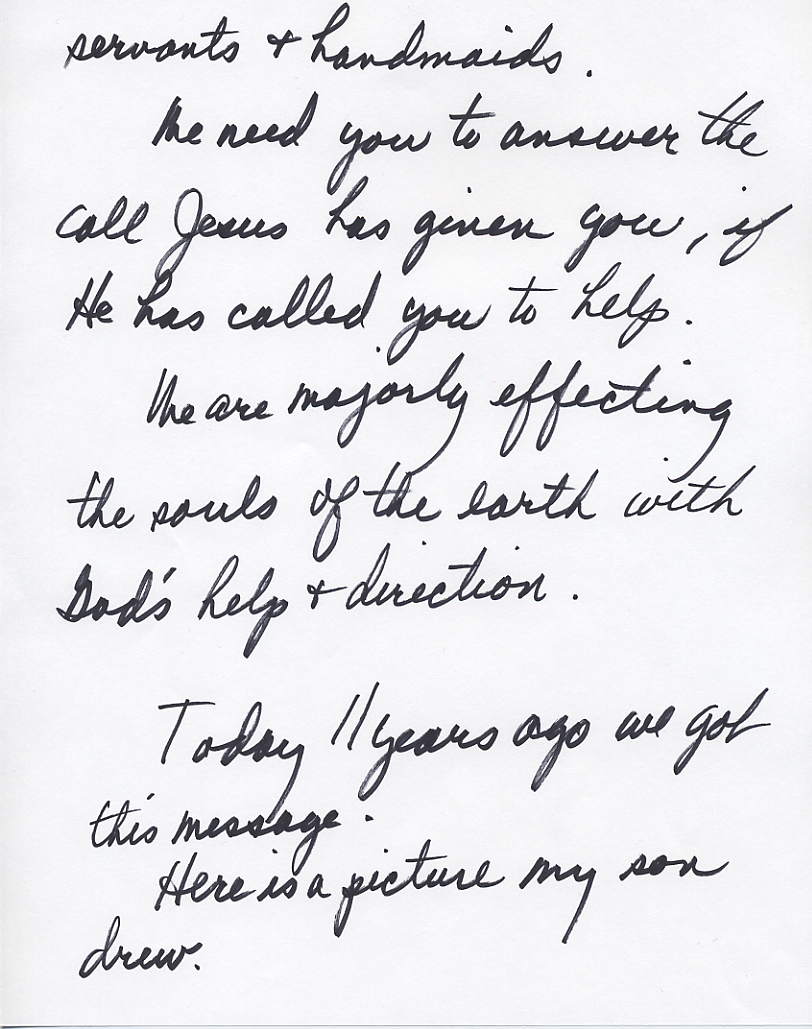 servants + handmaids.
We need you to answer the
call Jesus has given you, if
He has called you to help.
We are majorly effecting
the souls of the earth with
God's help + direction.
Today 11 years ago we got
this message.
Here is a picture my son
drew.